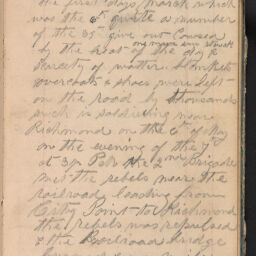 the first days march which
was the 6th quite a number
of the 85th give out Caused
by the heat of the day &
Scarcity of watter. blankets
overcoats & shoes were left
on the road by thousands
such is soldiering near
Richmond on the 6th of May
on the evening of the 7th
at 3 P.M. the 2nd Brigade
met the rebels near the
railroad leading from
City Point to Richmond
the rebels was repulsed
& the Railroad bridge